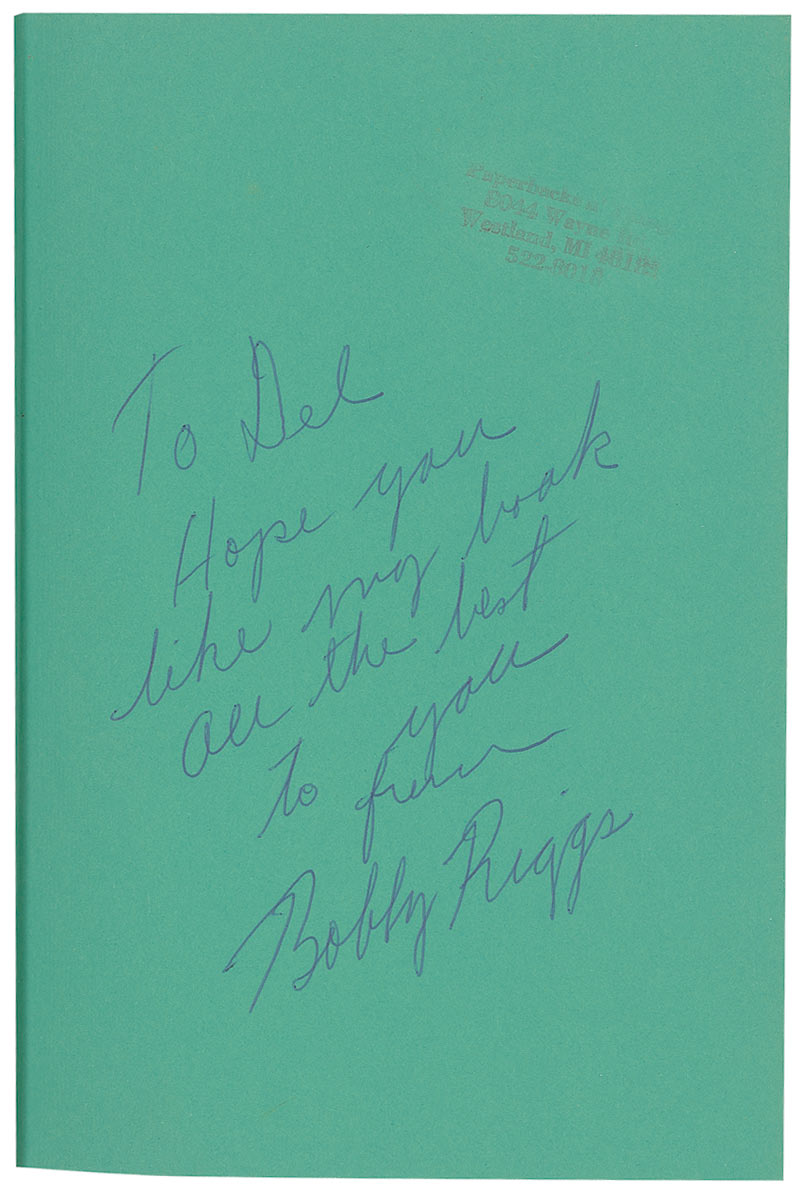 Paperbacks
8044 Wayne
Westland, MI 48185
To Del
Hope you
like my book
All the best
to you
from
Bobby Riggs